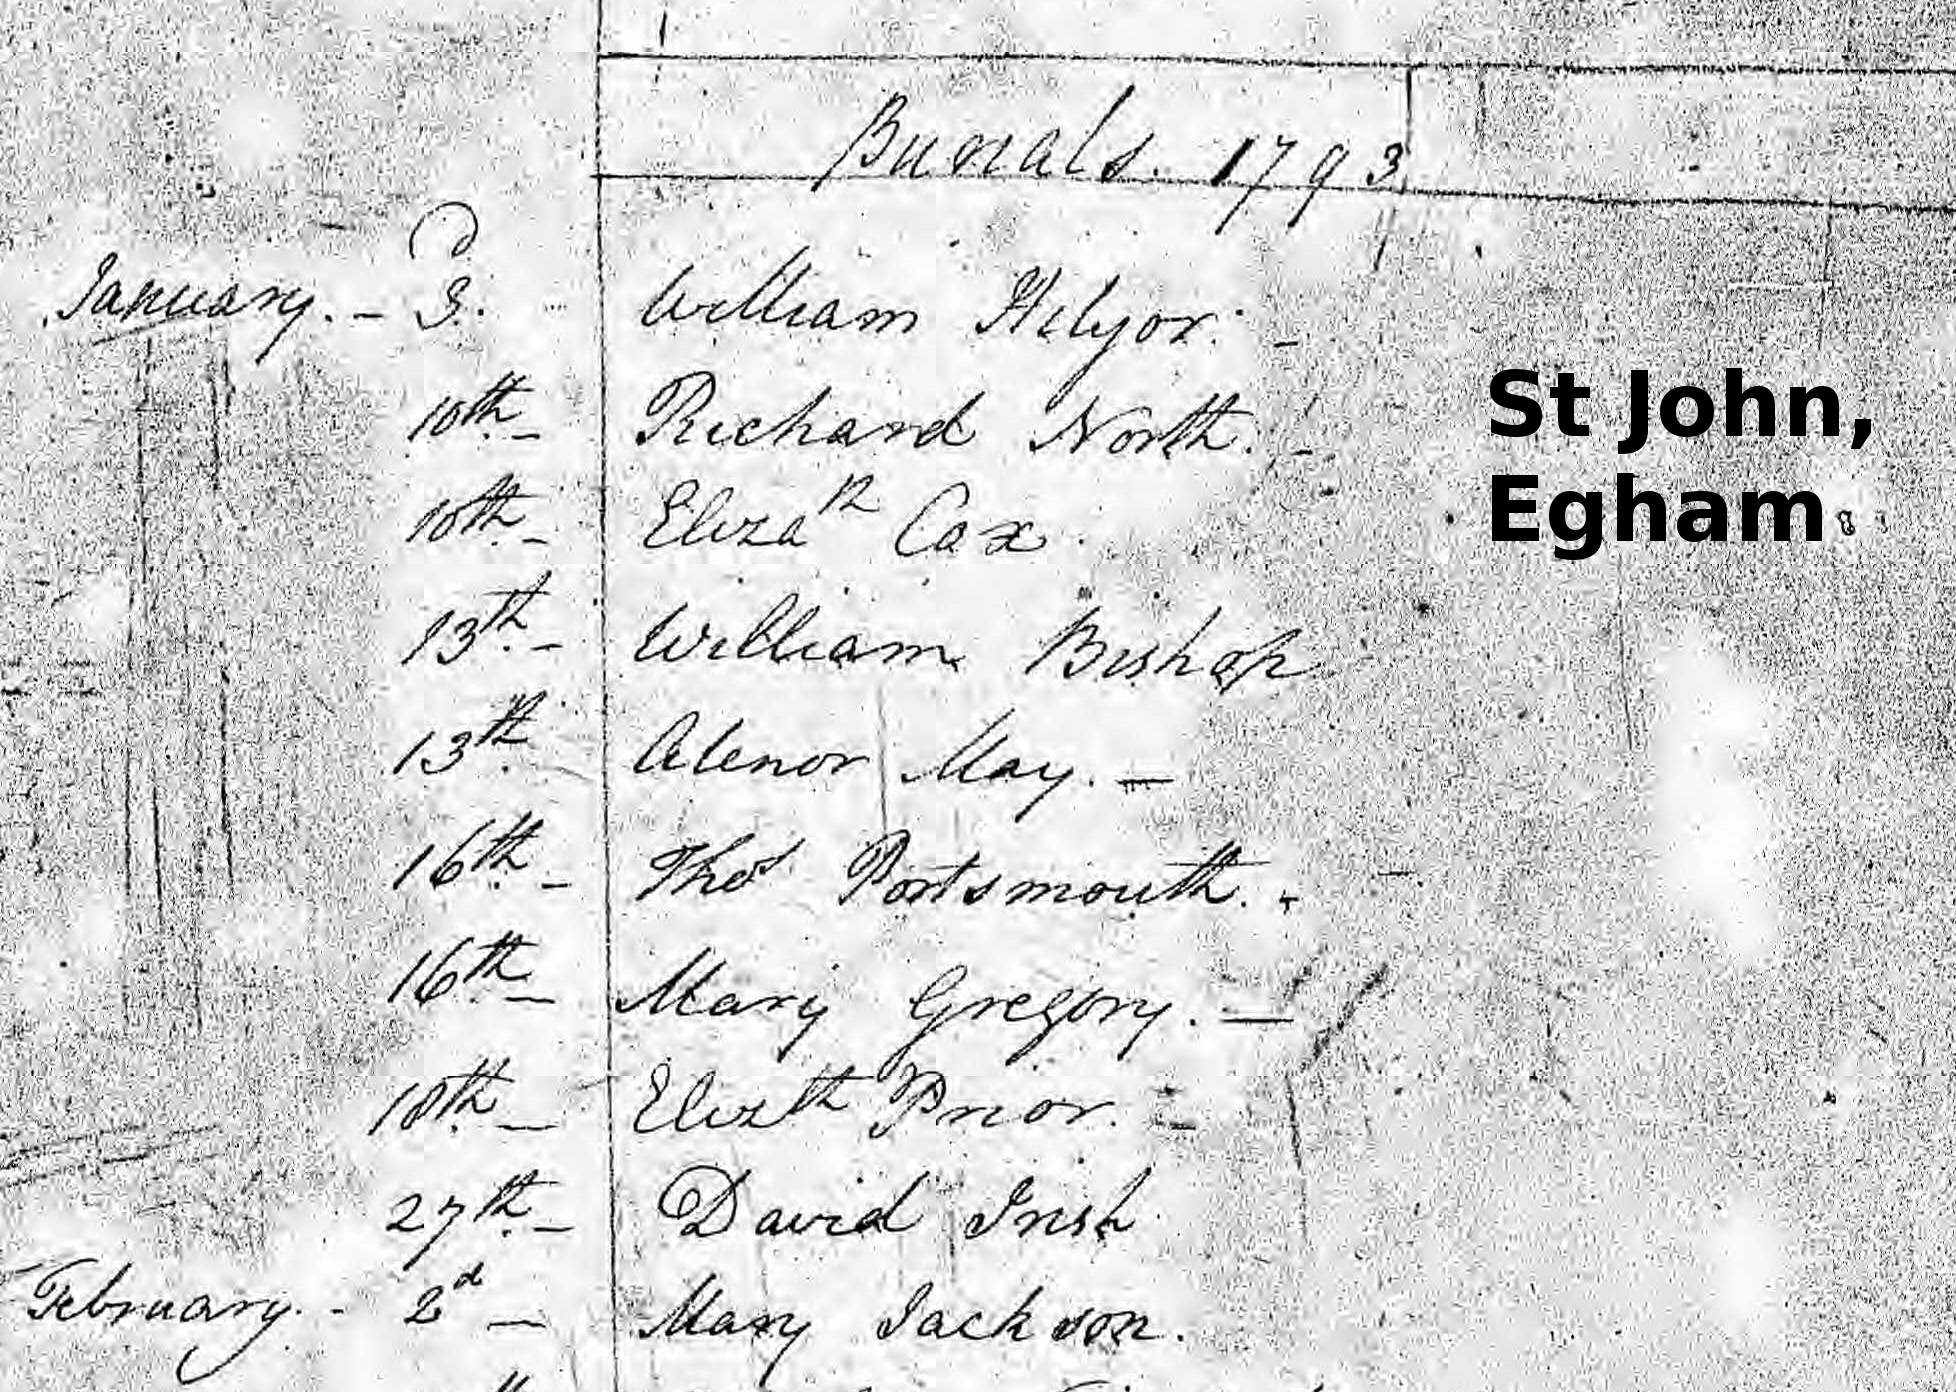 Burials. 1793
January. - 3. William Hilyor. -
10th. - Richard North. -
10th. - Elizath Cox.
13th. - William Bishop
13th. Alenor May. -
16th. - Thos Portsmouth. -
16th. - Mary Gregory. -
18th. - Elizth Prior. -
27th. - David Irish
February. - 2d - Mary Jackson.
St John,
Egham